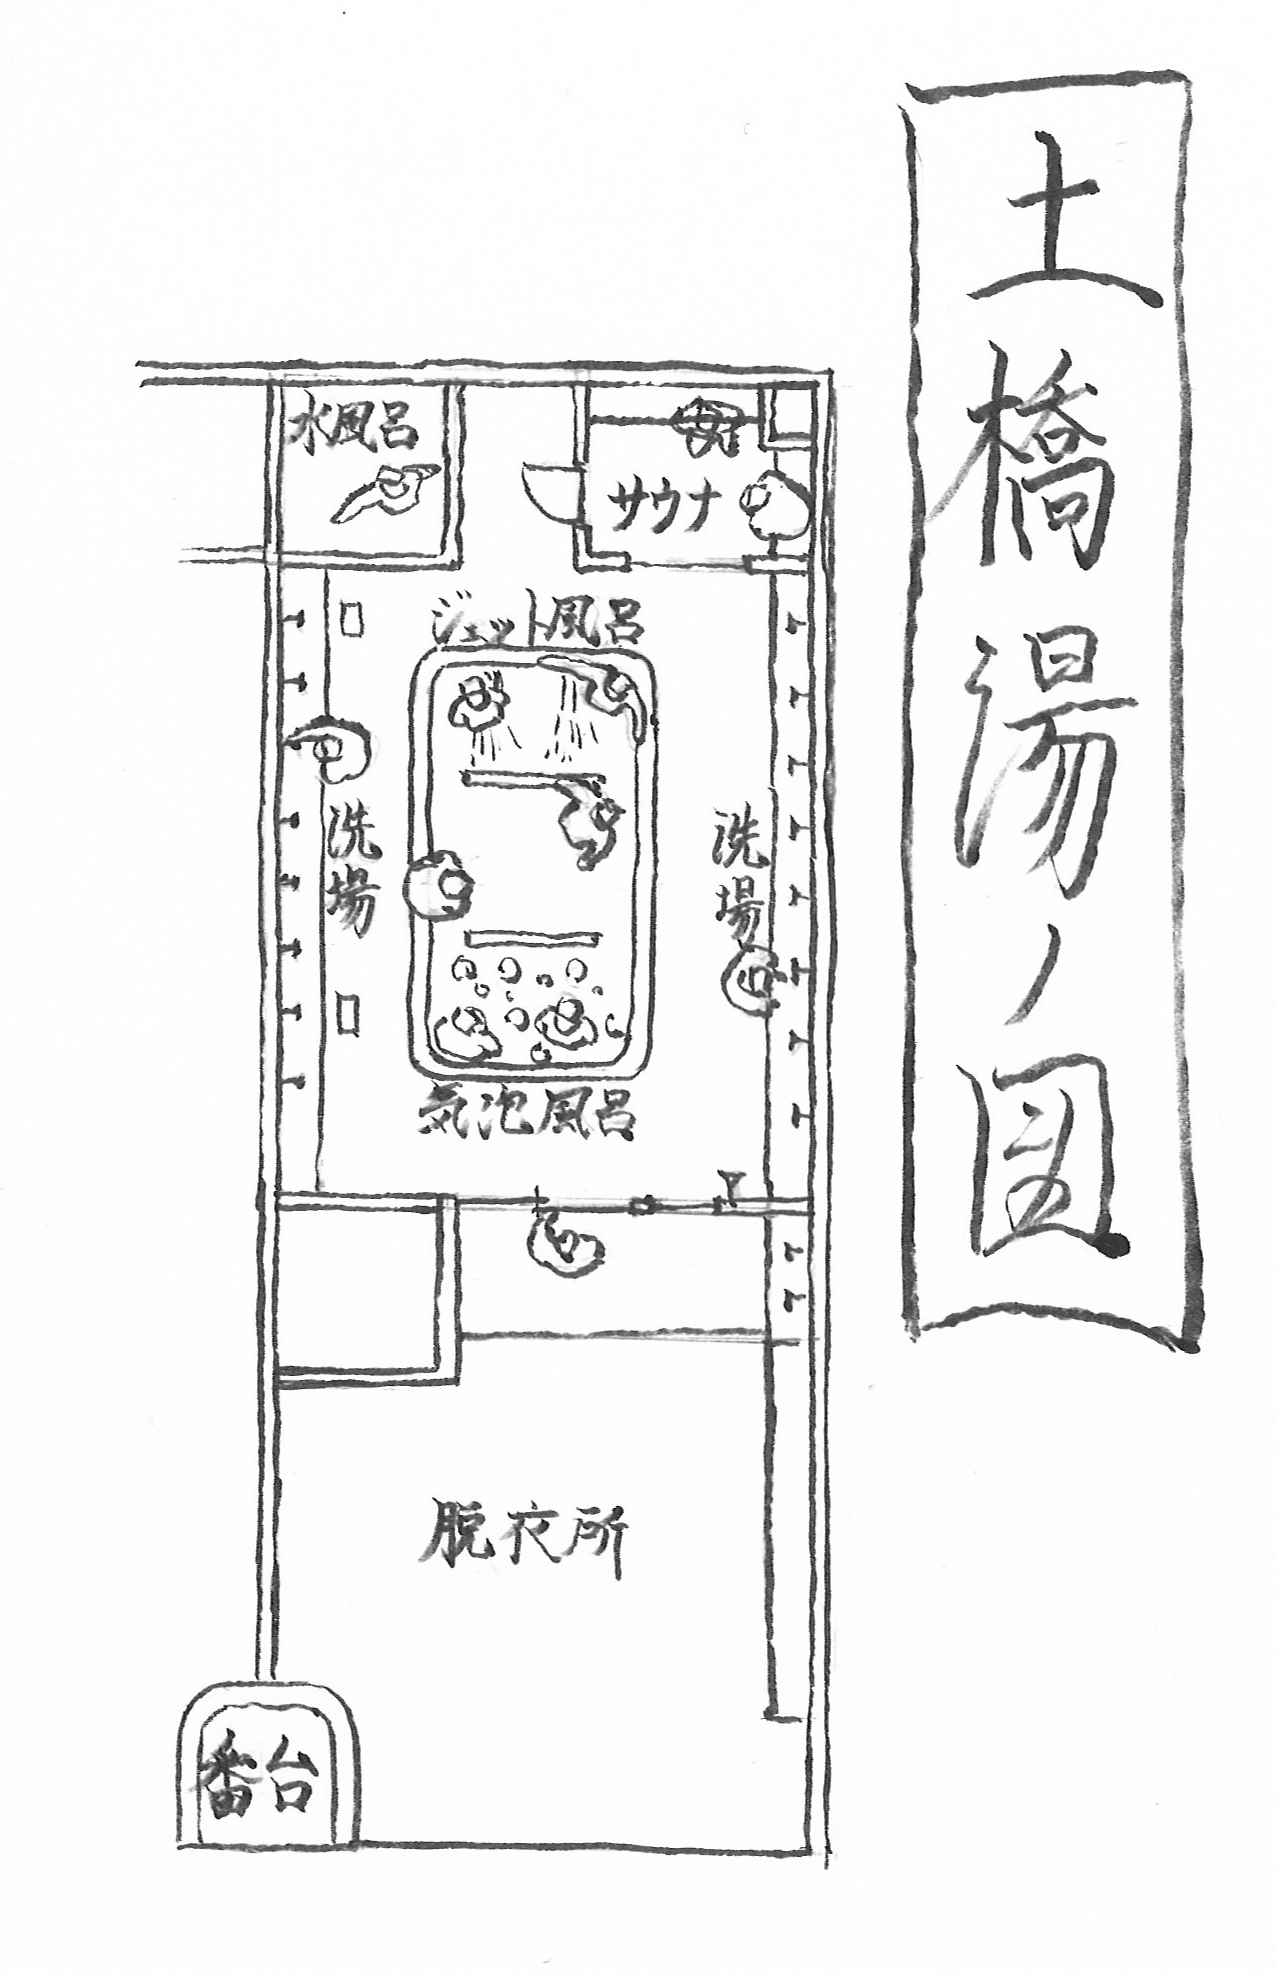 土橋湯ノ図
水風呂
サウナ
ジェット風呂
洗場
洗場
気泡風呂
脱衣所
番台